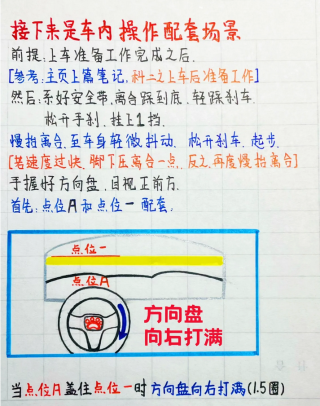 接下来是车内操作配套场景
前提：上车准备工作完成之后.
[参考：主页上篇笔记，科二之上车后准备工作]
然后：系好安全带，离合踩到底，轻踩刹车.
松开手刹，挂上1挡.
慢抬离合，至车身轻微抖动，松开刹车，起步.
[若速度过快，脚下压离合一点，反之再度慢抬离合]
手握好方向盘，目视正前方.
首先：点位A和点位一配套.
点位一
点位A
方向盘
向右打满
当点位A盖住点位一时方向盘向右打满(1.5圈)